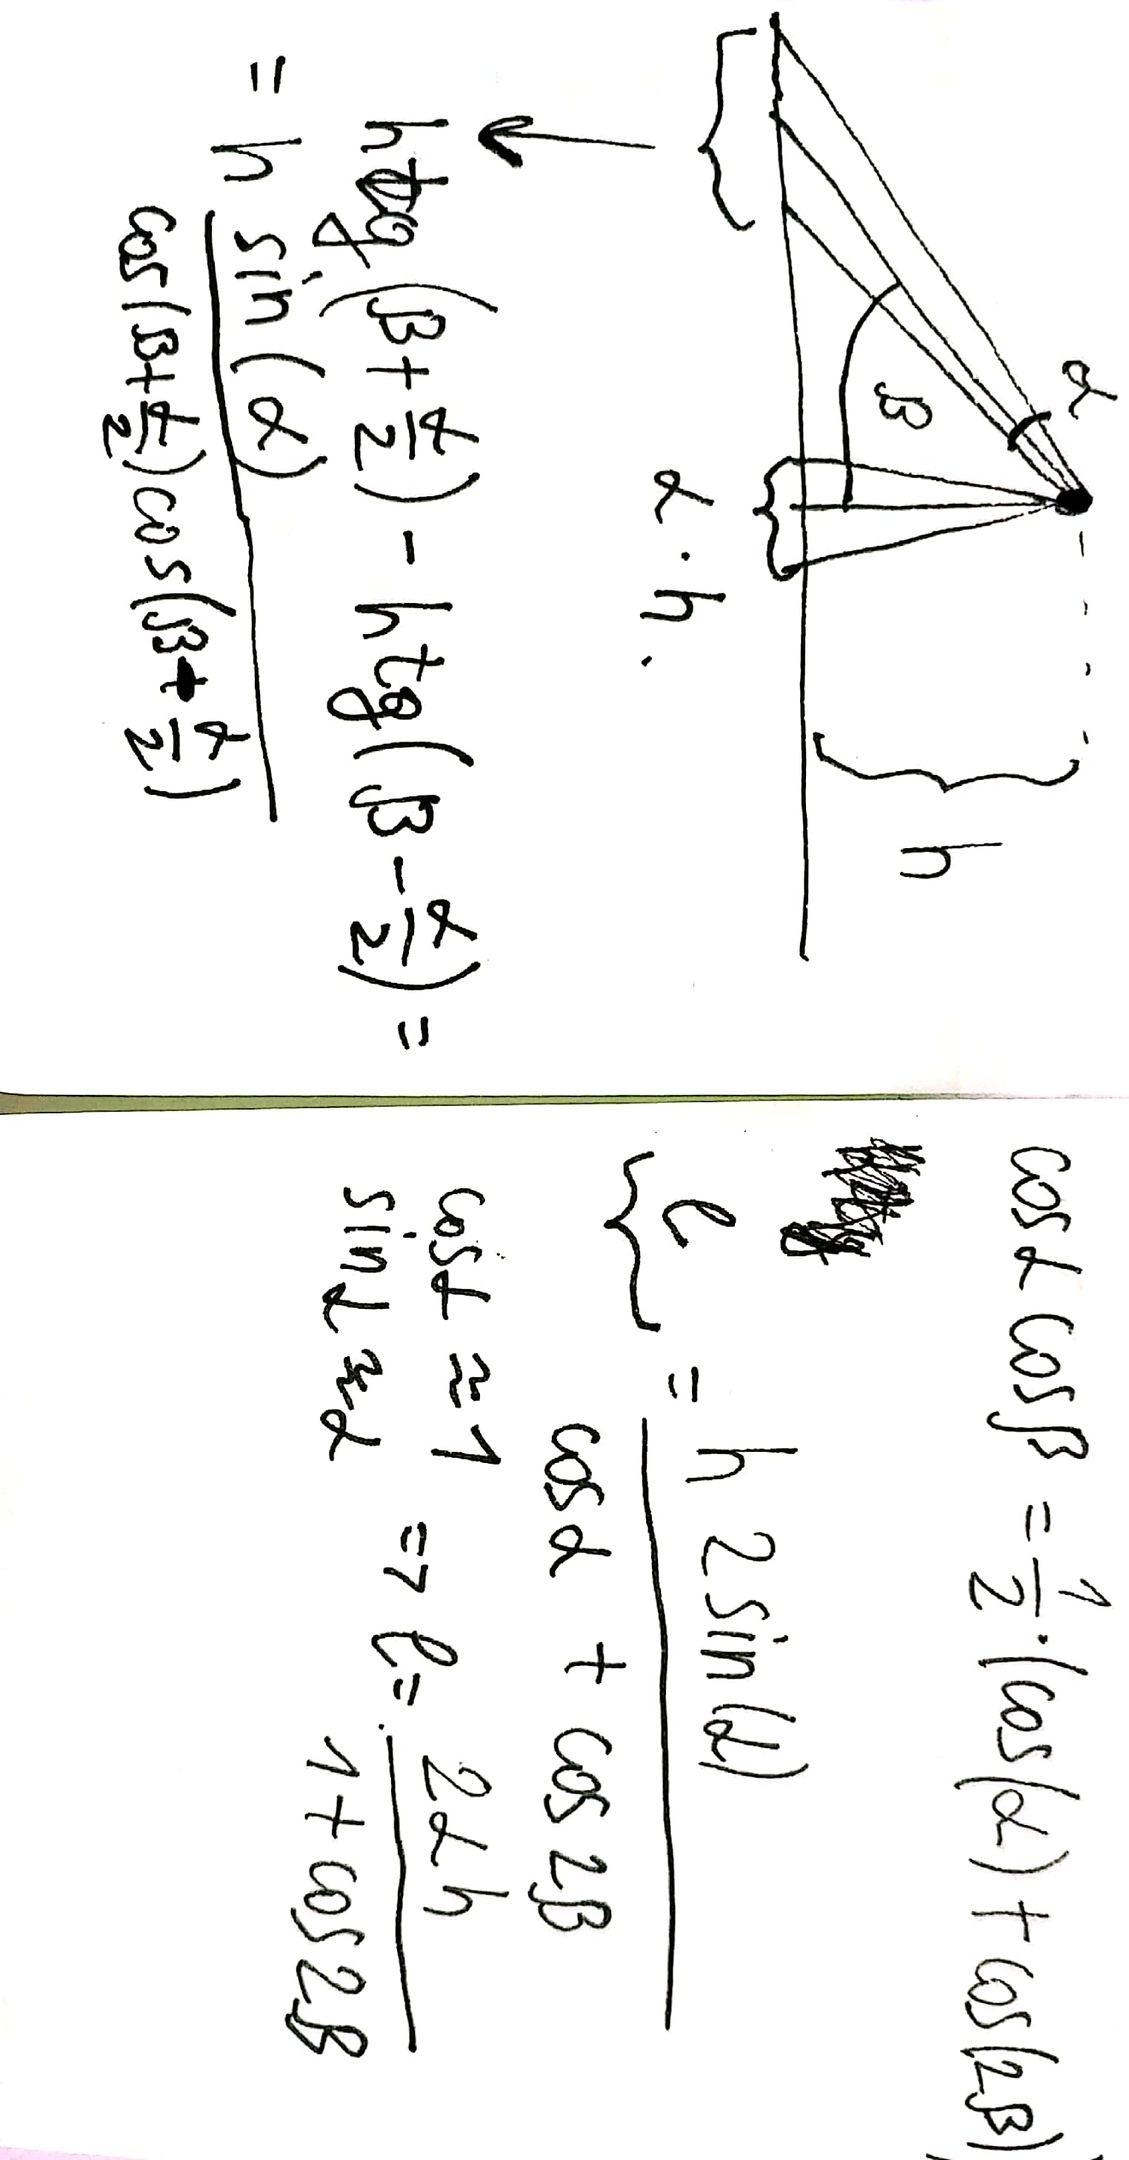 α
h
β
α · h.
h tg (β + α/2) - h tg (β - α/2) =
= h sin(α) / cos(β + α/2) cos(β + α/2)
cos α cos β = 1/2 · (cos(α) + cos(2β)
l = h 2 sin(α) / cos α + cos 2β
cos α ≈ 1
sin α ≈ α
=> l = 2αh / 1 + cos 2β